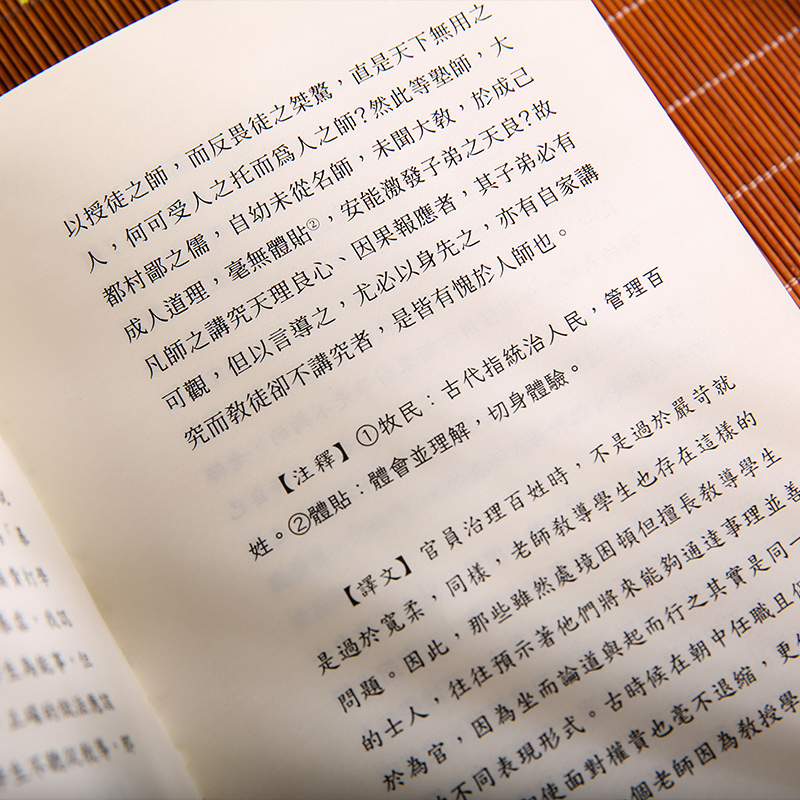 以授徒之師，而反畏徒之桀驁，直是天下無用之
人，何可受人之托而為人之師？然此等塾師，大
都村鄙之儒，自幼未從名師，未聞大教，於成己
成人道理，毫無體貼②，安能激發子弟之天良？故
凡師之講究天理良心、因果報應者，其子弟必有
可觀，但以言導之，尤必以身先之，亦有自家講
究而教徒卻不講究者，是皆有愧於人師也。
【注釋】①牧民：古代指統治人民，管理百
姓。②體貼：體會並理解，切身體驗。
【譯文】官員治理百姓時，不是過於嚴苛就
是過於寬柔，同樣，老師教導學生也存在這樣的
問題。因此，那些雖然處境困頓但擅長教導學生
的士人，往往預示著他們將來能夠通達事理並善
於為官，因為坐而論道與起而行之其實是同一
不同表現形式。古時候在朝中任職且
使面對權貴也毫不退縮，更
個老師因為教授學